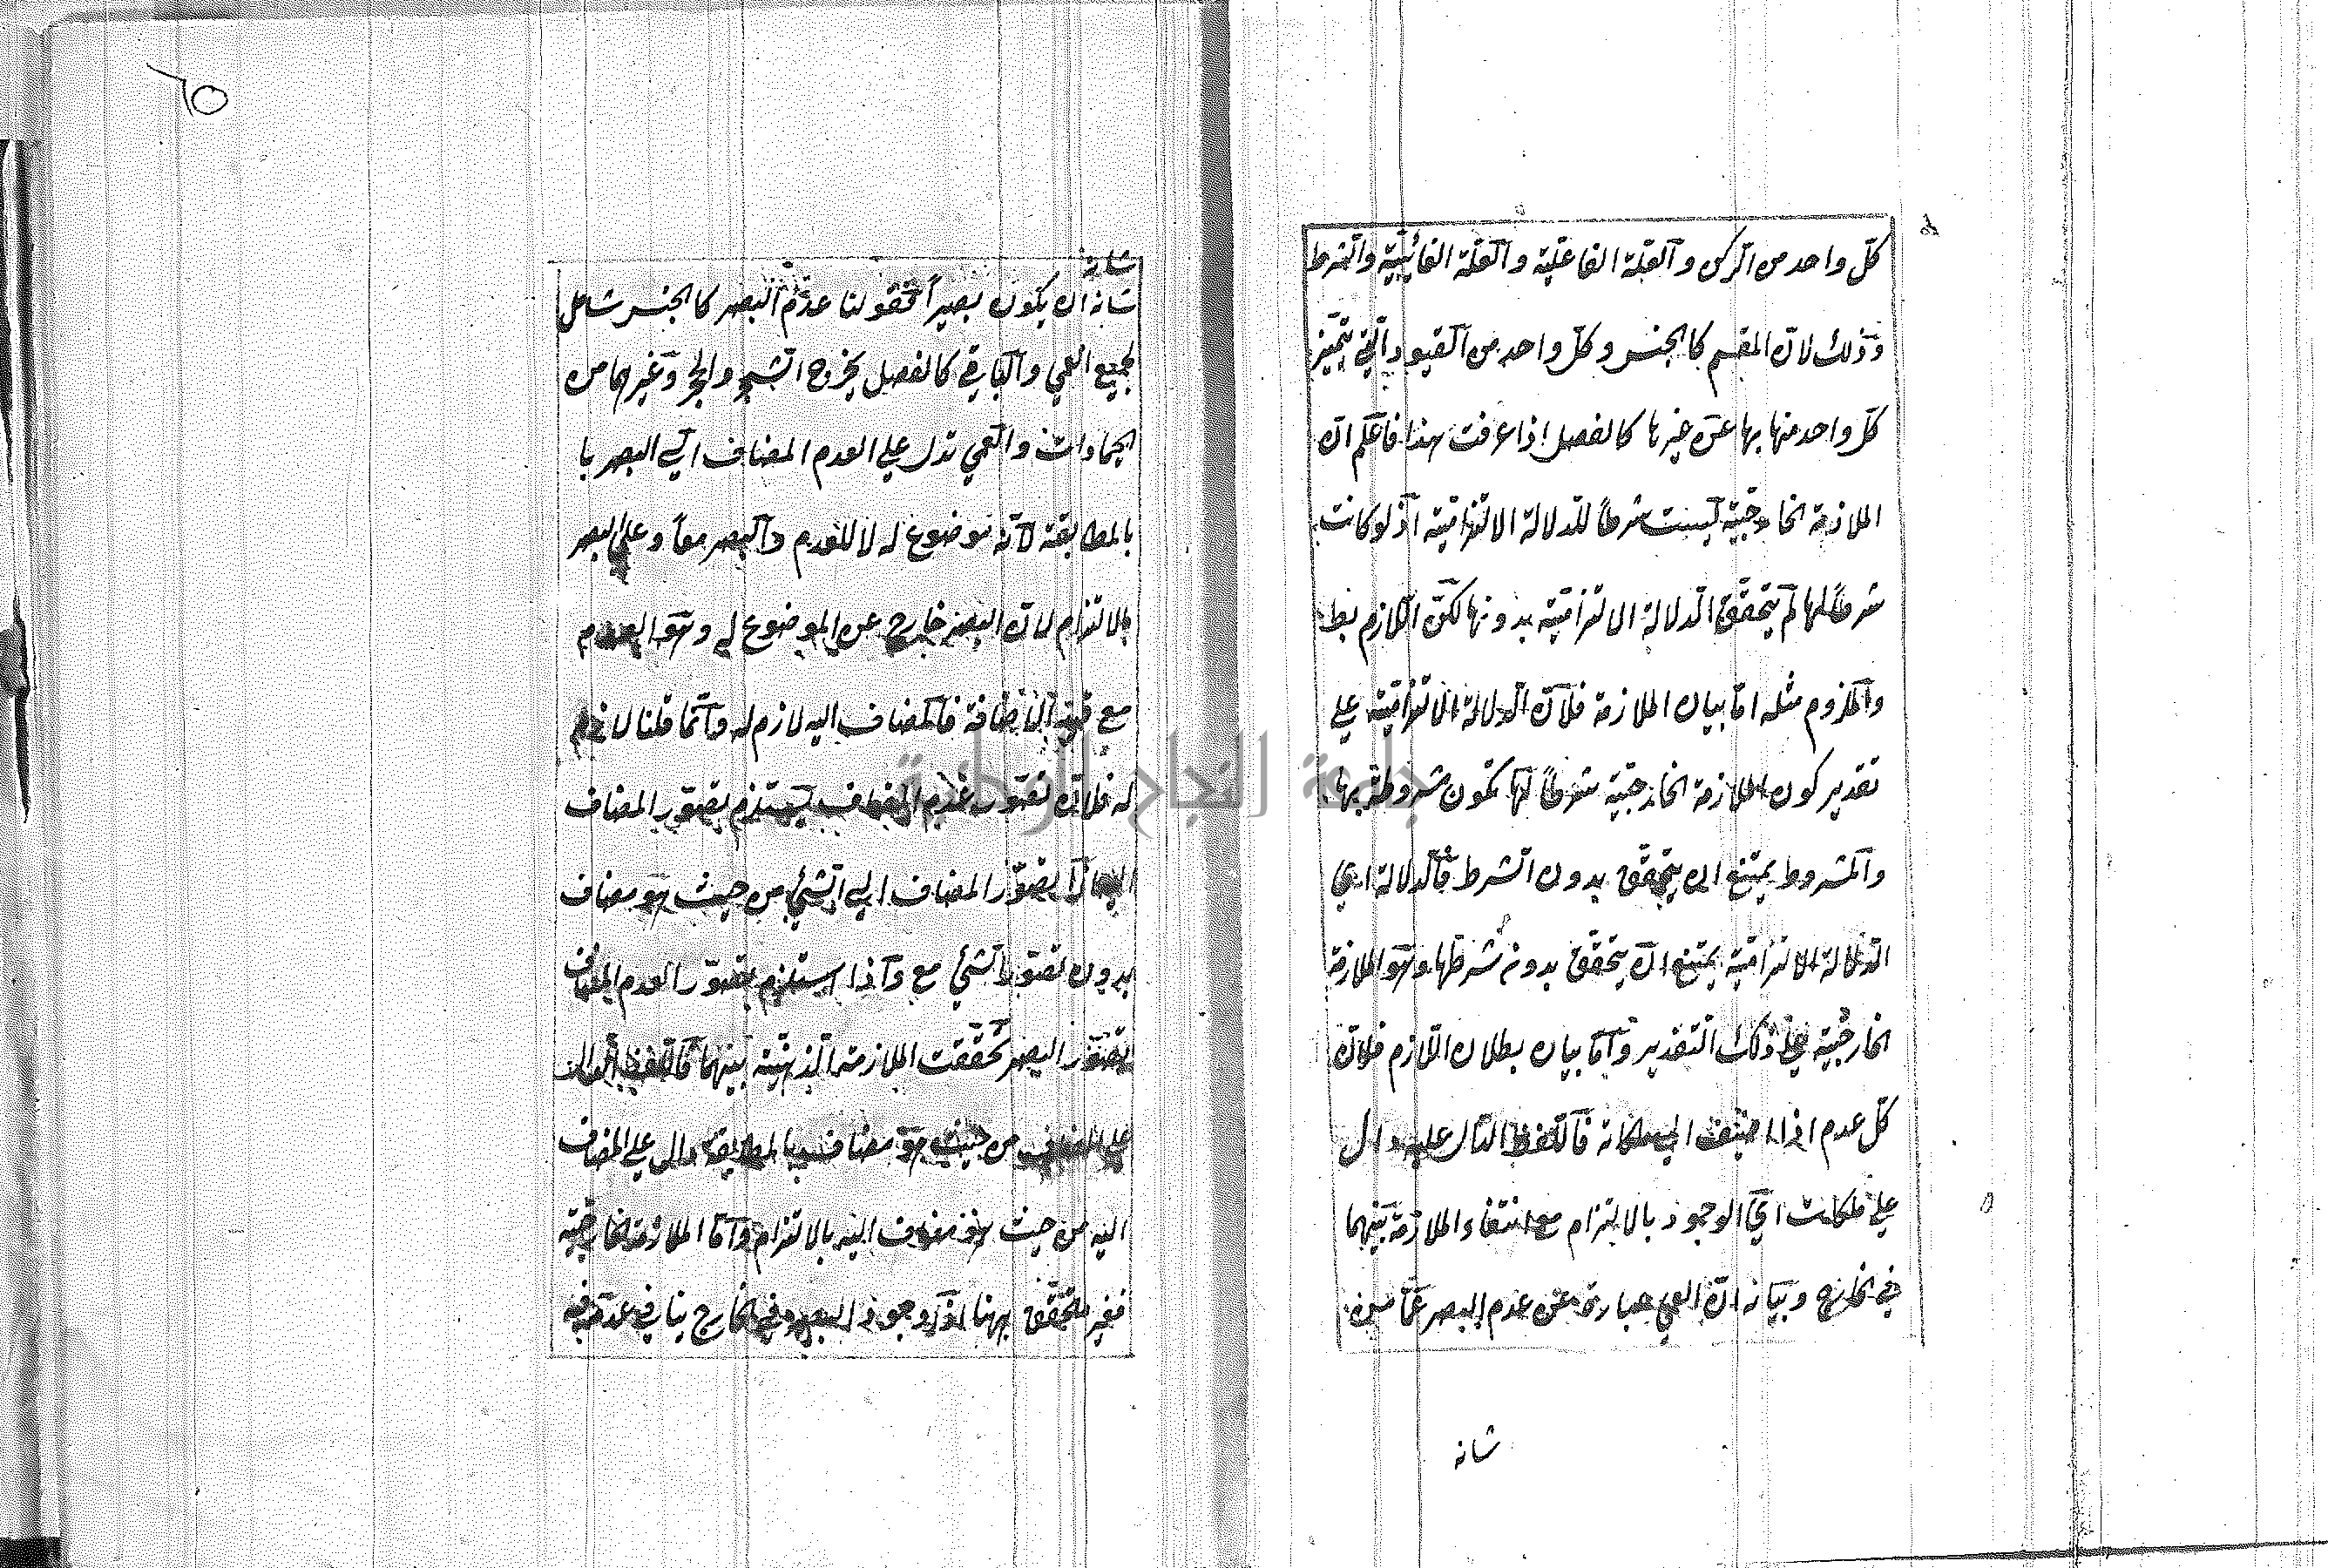 كلّ واحد من الركن والعلّة الفاعليّة والعلّة الغائيّة والشرط
وذلك لان المقسم كالجنس وكلّ واحد من القيود التي يتميّز
كلّ واحد منها بها عن غيرها كالفصل اذا عرفت هذا فاعلم انّ
الملازمة الخارجيّة ليست شرطاً للدلالة الالتزاميّة اذ لو كانت
شرطاً لها لم يتحقّق الدلالة الالتزاميّة بدونها لكنّ اللازم بط
والملزوم مثله امّا بيان الملازمة فلانّ الدلالة الالتزاميّة على
تقدير كون الملازمة الخارجيّة شرطاً لها تكون مشروطة بها
والمشروط يمتنع ان يتحقّق بدون الشرط فالدلالة اي
الدلالة الالتزاميّة يمتنع ان يتحقّق بدونه شرطها وهو الملازمة
الخارجيّة على ذلك التقدير وامّا بيان بطلان اللازم فلانّ
كلّ عدم اذا اضيف الى ملكاته فاللفظ الدالّ عليه دال
على ملكات اي الوجود بالالتزام مع انتفاء الملازمة بينهما
في الخارج وبيانه انّ العمى عبارة عن عدم البصر عمّا من
شانه
شانه
شانه ان يكون بصيراً فقولنا عدم البصر كالجنس شامل
لجميع العمى والباقي كالفصل يخرج الشجر والحجر وغيرهما من
الجمادات والعمى تدل على العدم المضاف الى البصر با
بالمطابقة لانّه موضوع له لا للعدم والبصر معاً وعلى البصر
بالالتزام لانّ البصر خارج عن الموضوع له وهو العدم
مع قيد الاضافة فالمضاف اليه لازم له وانّما قلنا لازم
له فلانّ تصور عدم المضاف يستلزم تصوّر المضاف
تصوّر المضاف الى الشئ من حيث هو مضاف
بدون تصوّر الشئ مع واذا استلزم تصوّر العدم المضاف
تصوّر البصر تحققت الملازمة الذهنيّة بينهما فاللفظ الدال
على المضاف من حيث هو مضاف بالمطابقة دال على المضاف
اليه من حيث هو مضاف اليه بالالتزام وامّا الملازمة الخارجيّة
فغير متحقّق ههنا اذ وجود البصر في الخارج ينافي عدمه